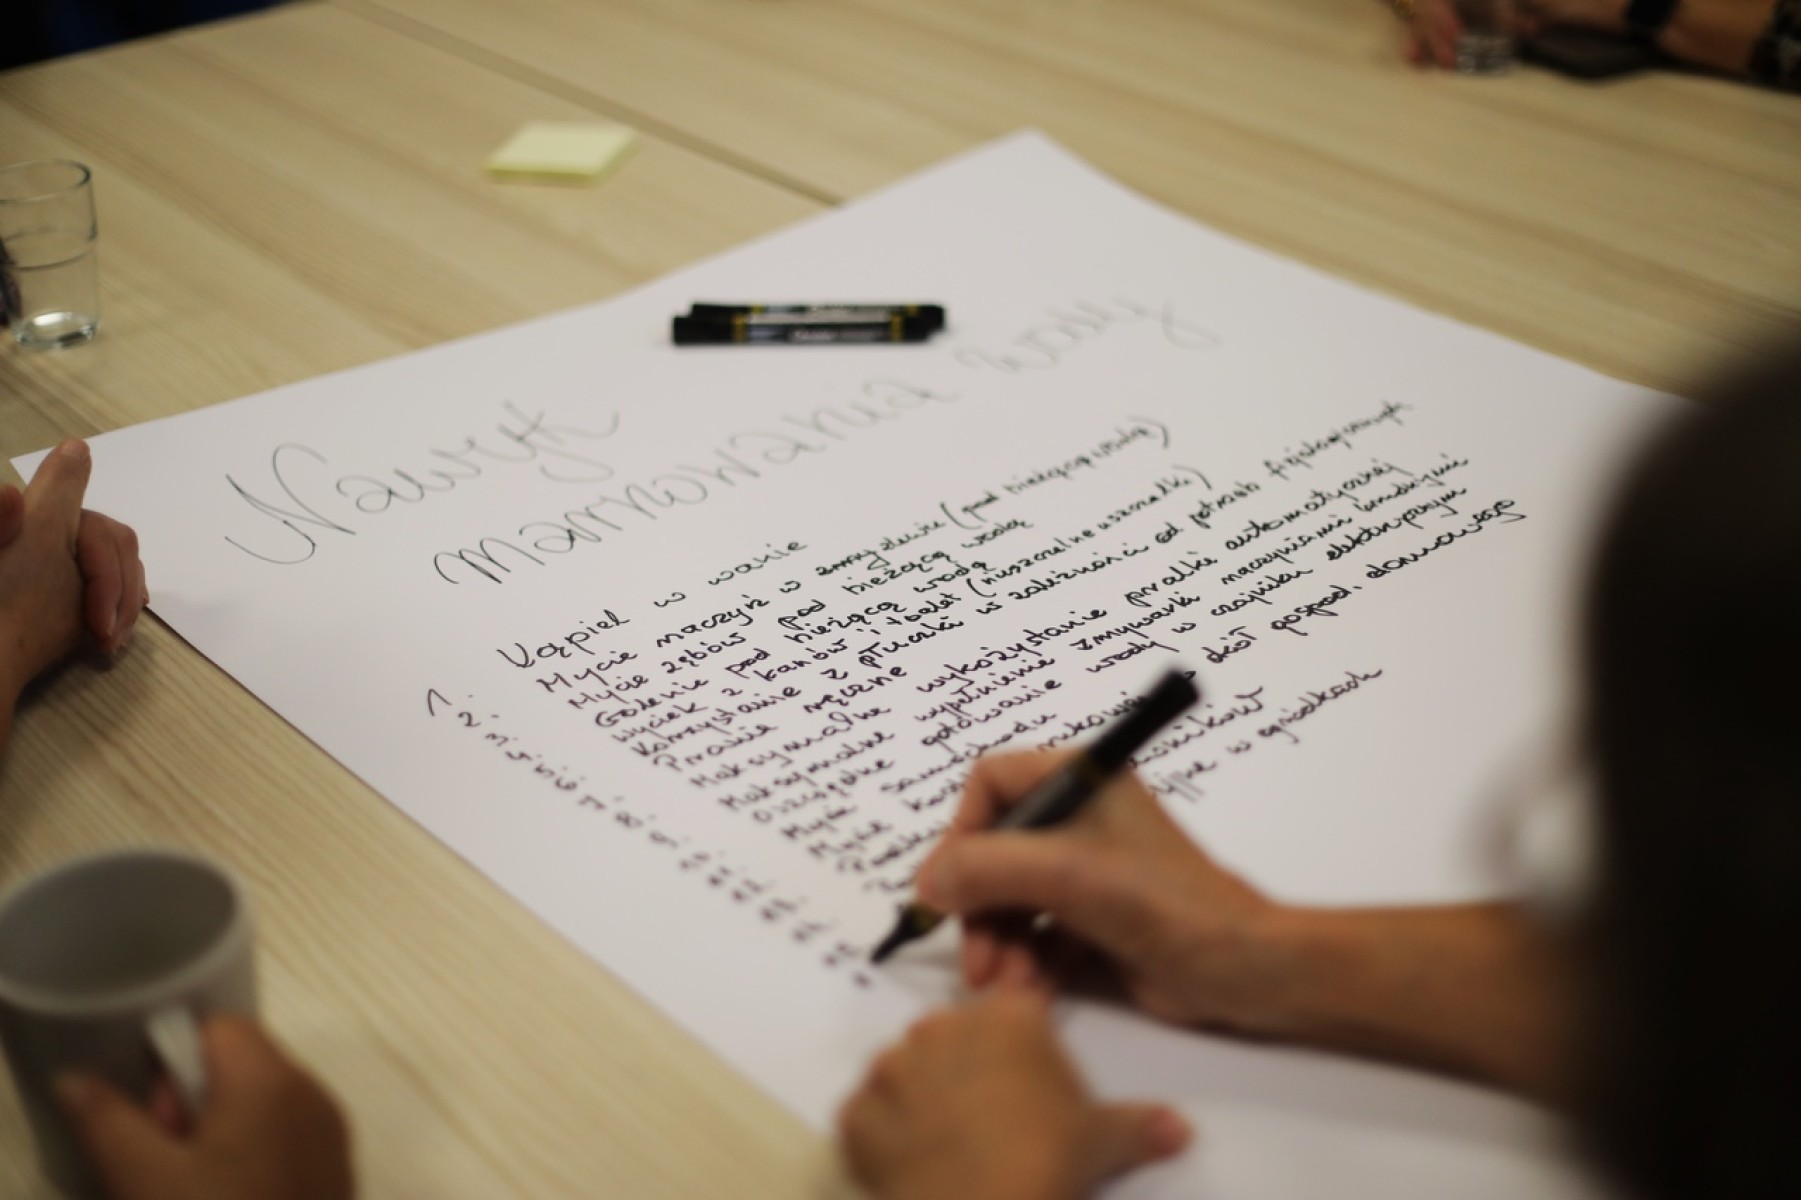 Nawyk
marnowania wody
1. Kąpiel w wanie
2. Mycie naczyń w zmyzlewie (pod bieżącą wodą)
3. Mycie zębów pod bieżącą wodą
4. Golenie pod bieżącą wodą
5. Wyciek z kranów i toalet (nieszczelne uszczelki)
6. Korzystanie z płuczki w zależności od potrzeb fizjologicznych
7. Pranie ręczne
8. Maksymalne wykożystanie pralki automatycznej
9. Maksymalne wypełnienie zmywarki naczyniami brudnymi
10. Oszczędne gotowanie wody w czajniku elektrycznym
11. Mycie samochodu
12. Mycie kost dkół gospod. domowego
13.
14. w ogródkach
15.